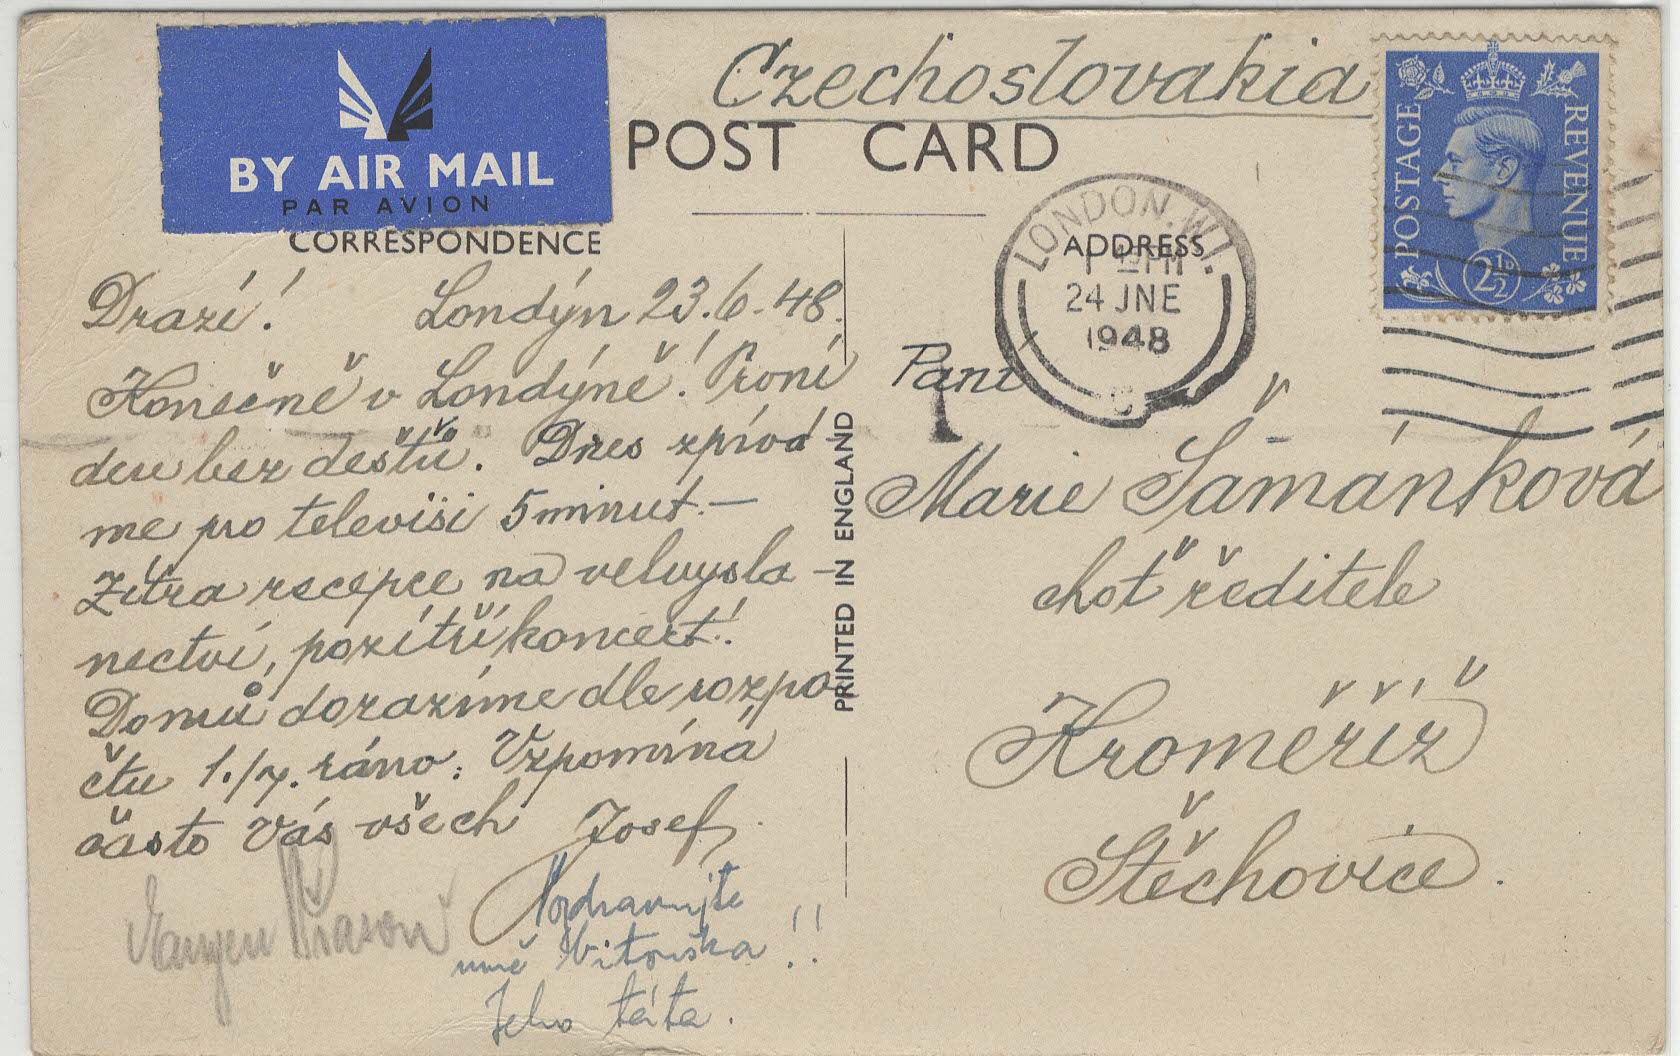 BY AIR MAIL
PAR AVION
Czechoslovakia
POST CARD
POSTAGE
REVENUE
2½D
CORRESPONDENCE
ADDRESS
LONDON. W.1.
24 JNE
1948
PRINTED IN ENGLAND
Drazí! Londýn 23.6.48.
Konečně v Londýně! První
den bez deštů. Dnes zpívá
me pro televisi 5 minut. –
Zítra recepce na velvysla –
nectví, pozítří koncert!
Domů dorazíme dle rozpo
čtu 1./7. ráno. Vzpomíná
často Vás všech Josef.
Pozdravujte
mně Vitouška!!
Jeho táta.
Paní
Marie Šamánková
choť ředitele
Kroměříž
Štěchovice.